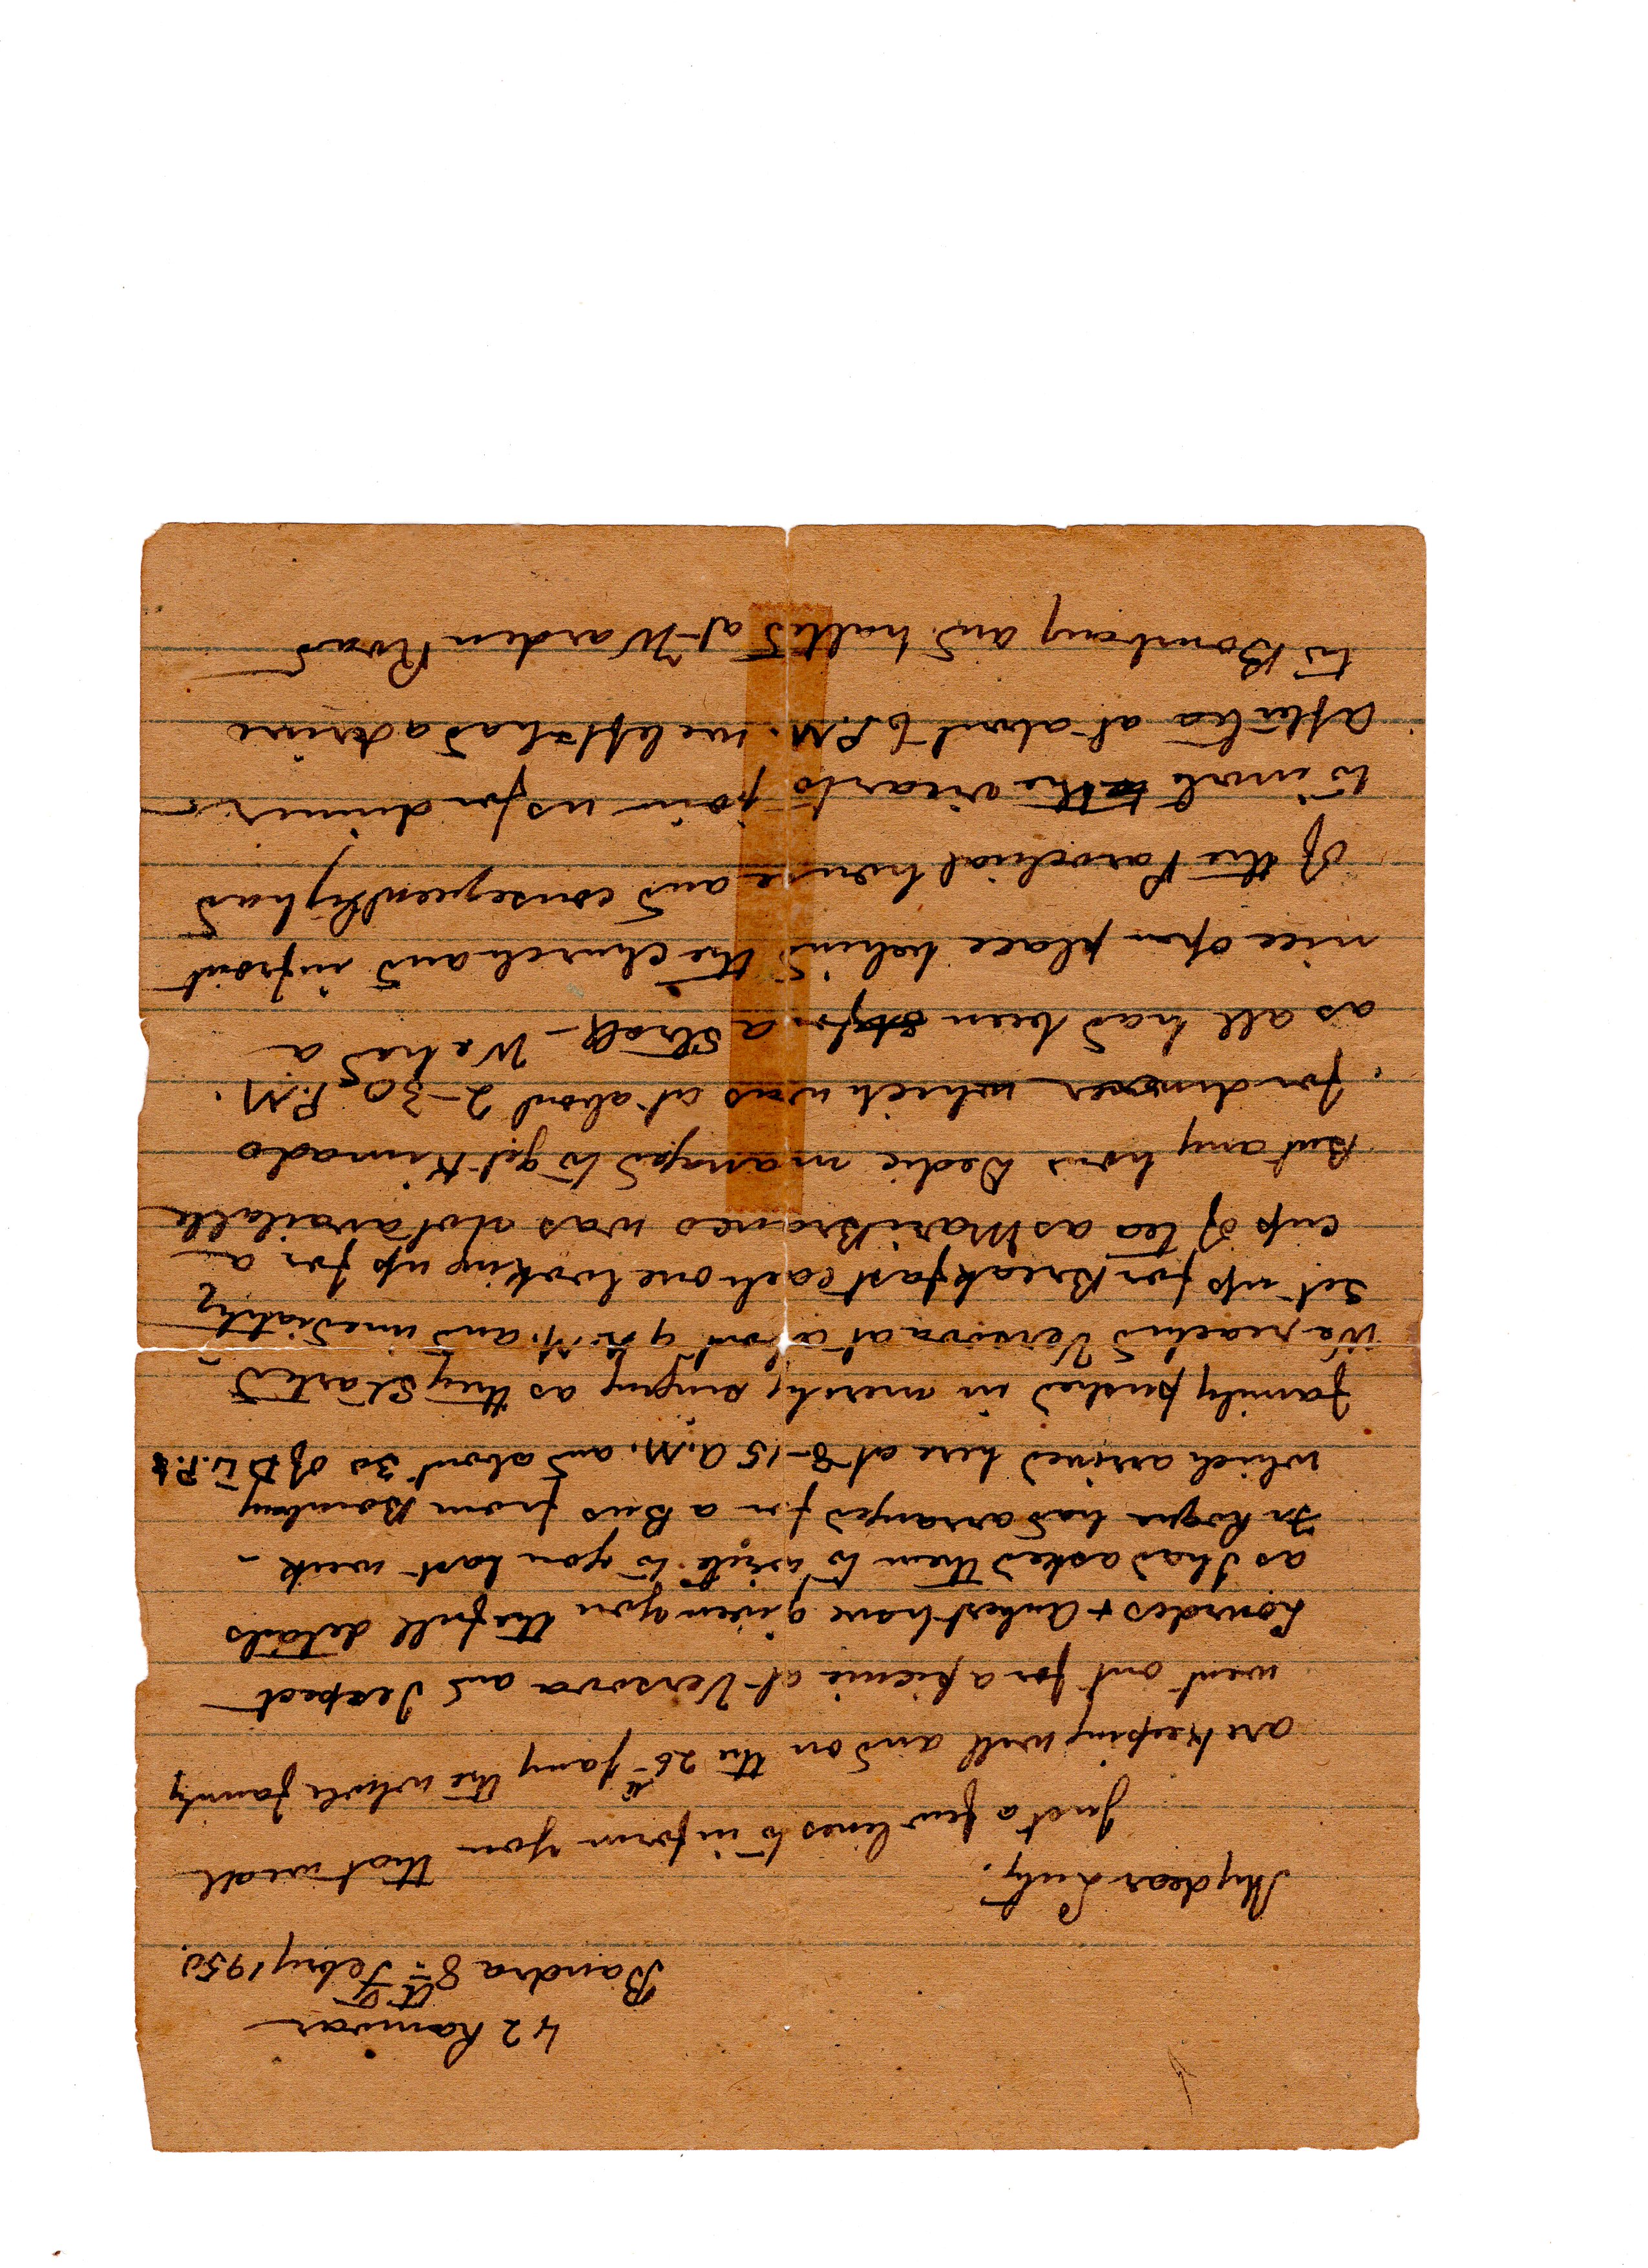 42 Raniwar
Bandra 8th Febry 1950.
My dear Luty.
Just a few lines to inform you that we all
are keeping well and on the 26th Jany the whole family
went out for a picnic at Versova and I expect
Lourdes + Aubert have given you the full details
as I had asked them to write to you last week -
Fr Roque had arranged for a Bus from Bombay
which arrived here at 8-15 A.M. and about 30 of
family pushed in merily singing as they started -
We reached Versova at about 9 A.M. and imediately
set up for Breakfast each one looking up for a
cup of tea as Mari Branco was not available
But any how Dedic managed to get Kimado
for dinner which was at about 2-30 P.M.
as all had been for a stroll - We had a
nice open place behind the church and infront
of the Parochial house and consequently had
to invite the vicar to join us for dinner -
After tea at about 6 P.M. we left had a drive
to Bombay and halted at Warden Road